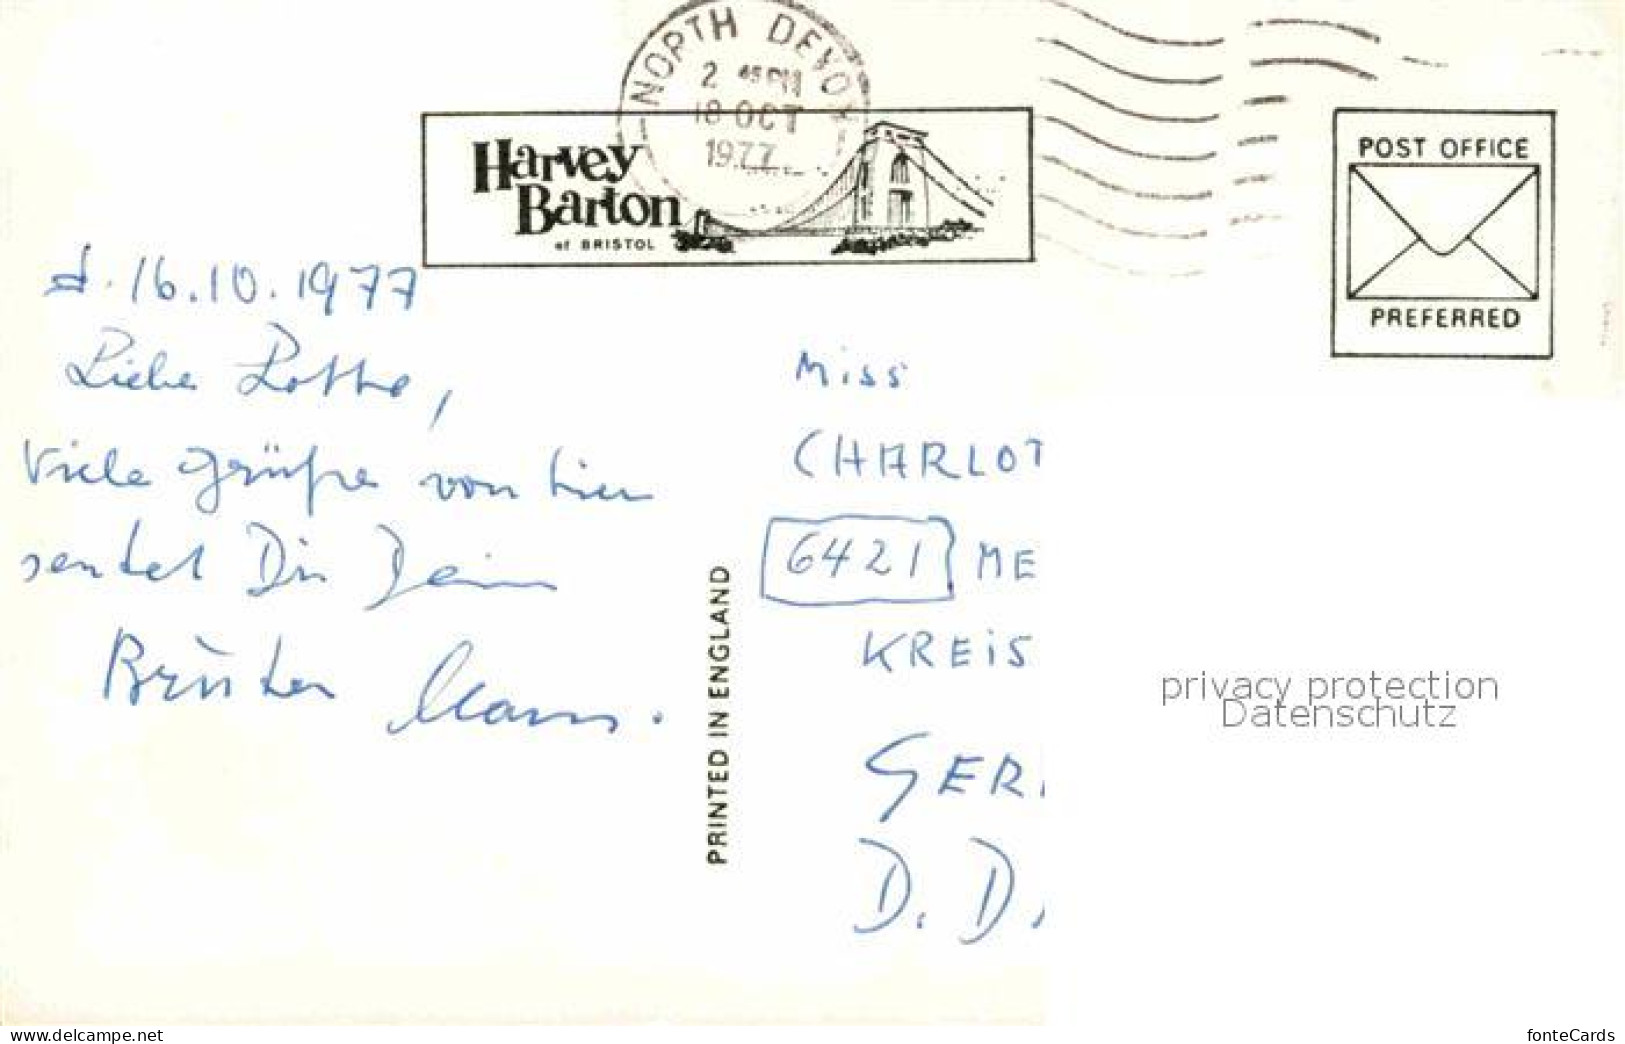 NORTH DEVON
2 45 PM
18 OCT
1977
Harvey
Barton
of BRISTOL
POST OFFICE
PREFERRED
d. 16.10.1977
Liebe Lotte,
Viele Grüße von hier
sendet Dir Dein
Brüder
PRINTED IN ENGLAND
Miss
CHARLOT
6421 ME
KREIS
GER
D. D.
privacy protection
Datenschutz
www.delcampe.net
fonteCards